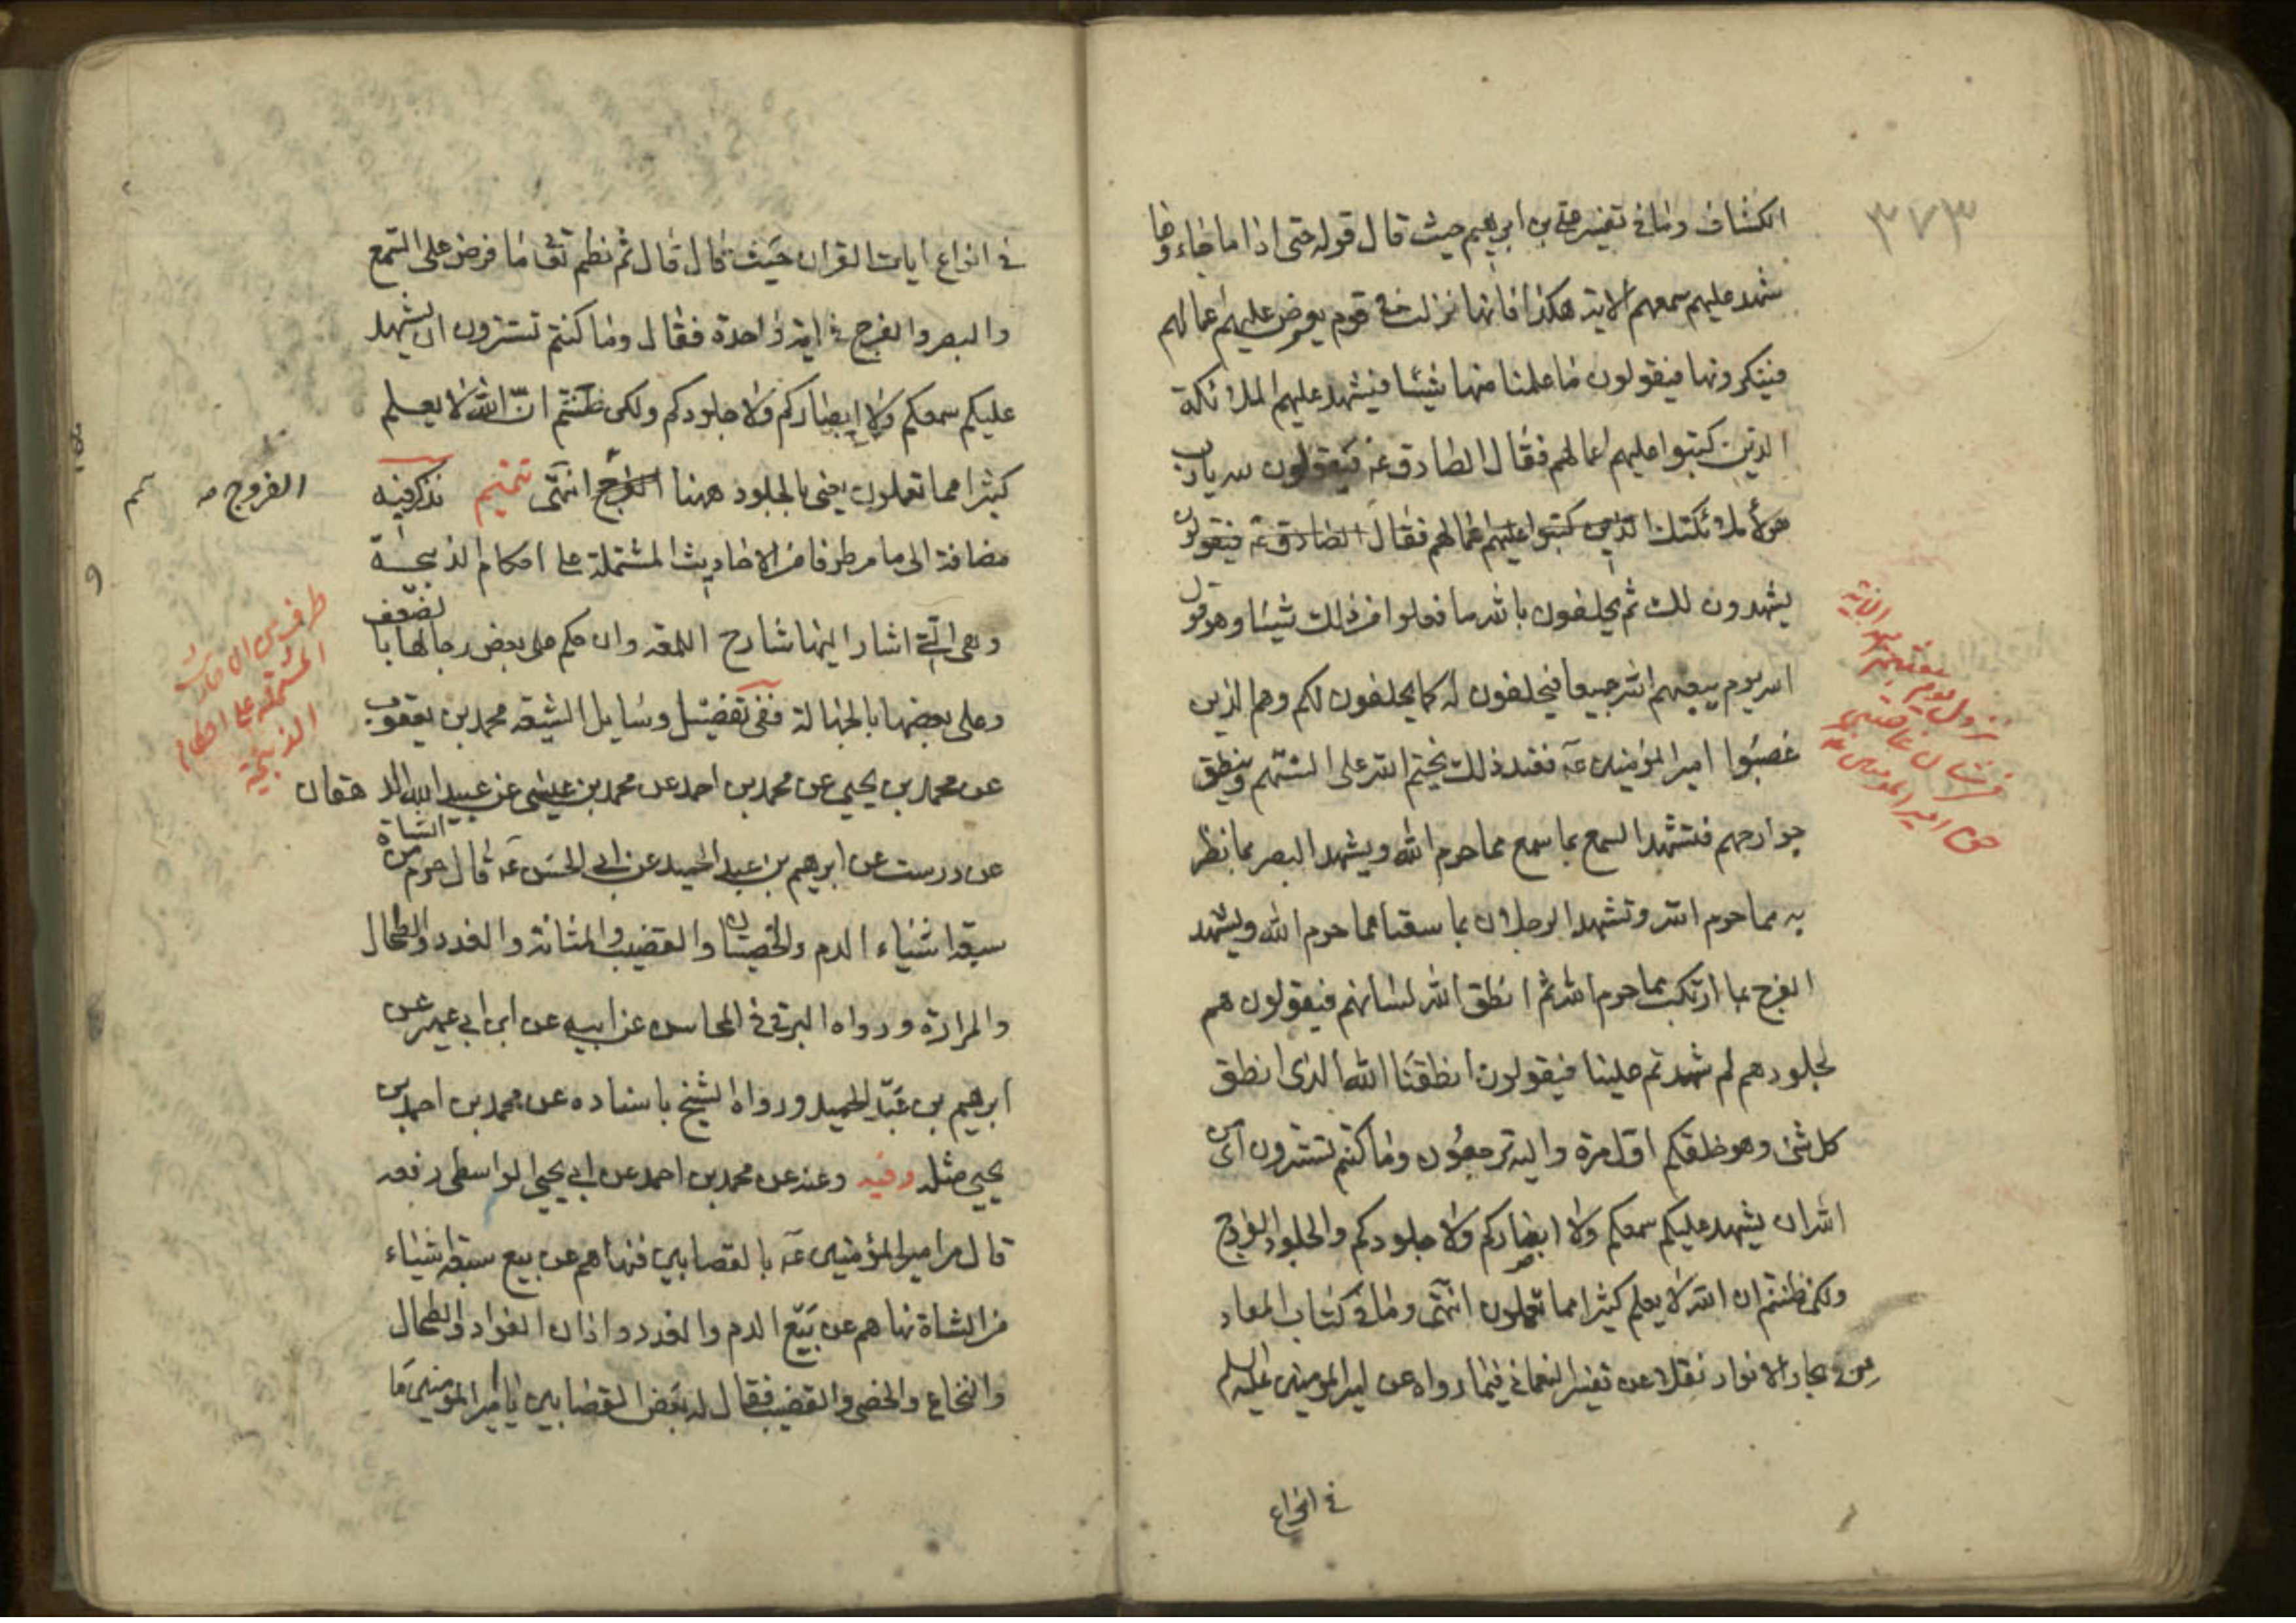 ٣٧٣
انكشاف وما في تفسير علي بن ابرهيم حيث قال قوله حتى اذا ما جاءوها
شهد عليهم سمعهم الاية هكذا فانها نزلت في قوم يعرض عليهم اعمالهم
فينكرونها فيقولون ما علمنا منها شيئا فيشهد عليهم الملائكة
الذين كتبوا عليهم اعمالهم فقال الصادق ع فيقولون لله يا رب
هؤلاء ملائكتك الذين كتبوا عليهم اعمالهم فقال الصادق ع فيقولون
يشهدون لك ثم يحلفون بالله ما فعلوا من ذلك شيئا وهو قول
الله يوم يبعثهم الله جميعا فيحلفون له كما يحلفون لكم وهم الذين
غصبوا امير المؤمنين ع فعند ذلك يختم الله على السنتهم وينطق
جوارحهم فتشهد السمع بما سمع مما حرم الله ويشهد البصر بما نظر
به مما حرم الله وتشهد الرجلان بما سعتا مما حرم الله ويشهد
الفرج بما ارتكبت مما حرم الله ثم انطق الله لسانهم فيقولون هم
لجلودهم لم شهدتم علينا فيقولون انطقنا الله الذي انطق
كل شئ وهو خلقكم اول مرة واليه ترجعون وما كنتم تستترون اي من
الله ان يشهد عليكم سمعكم ولا ابصاركم ولا جلودكم والجلود الفروج
ولكن ظننتم ان الله لا يعلم كثيرا مما تعملون انتهى وما في كتاب المعاد
من بحار الانوار نقلا عن تفسير النعماني فيما رواه عن امير المؤمنين عليه السلم
في انواع
امير المؤمنين ع
في انواع ايات القران حيث قال قال ثم نظم تع ما فرض على السمع
والبصر والفرج في اية واحدة فقال وما كنتم تستترون ان يشهد
عليكم سمعكم ولا ابصاركم ولا جلودكم ولكن ظننتم ان الله لا يعلم
كثيرا مما تعملون يعني بالجلود ههنا الفرج انتهى تتميم نذكر فيه
الفروج
مضافة الى ما مر طرفا من الاحاديث المشتملة على احكام الذبيحة
وهي التي اشار اليها شارح اللمعة وان حكم على بعض رجالها بالضعف
وعلى بعضها بالجهالة ففي تفصيل وسايل الشيعة محمد بن يعقوب
عن محمد بن يحيى عن محمد بن احمد عن محمد بن عيسى عن عبيد الله الدهقان
عن درست عن ابرهيم بن عبد الحميد عن ابي الحسن ع قال حرم من الشاة
سبعة اشياء الدم والخصيتان والقضيب والمثانة والغدد والطحال
والمرارة ورواه البرقي في المحاسن عن ابيه عن ابن ابي عمير عن
ابرهيم بن عبد الحميد ورواه الشيخ باسناده عن محمد بن احمد بن
يحيى مثله وفيه وعنه عن محمد بن احمد عن ابي يحيى الواسطي رفعه
قال مر امير المؤمنين ع بالقصابين فنهاهم عن بيع سبعة اشياء
من الشاة نهاهم عن بيع الدم والغدد واذان الفواد والطحال
والنخاع والخصي والقضيب فقال له بعض القصابين يا امير المؤمنين ما
طرف من الاحاديث
المشتملة على احكام
الذبيحة